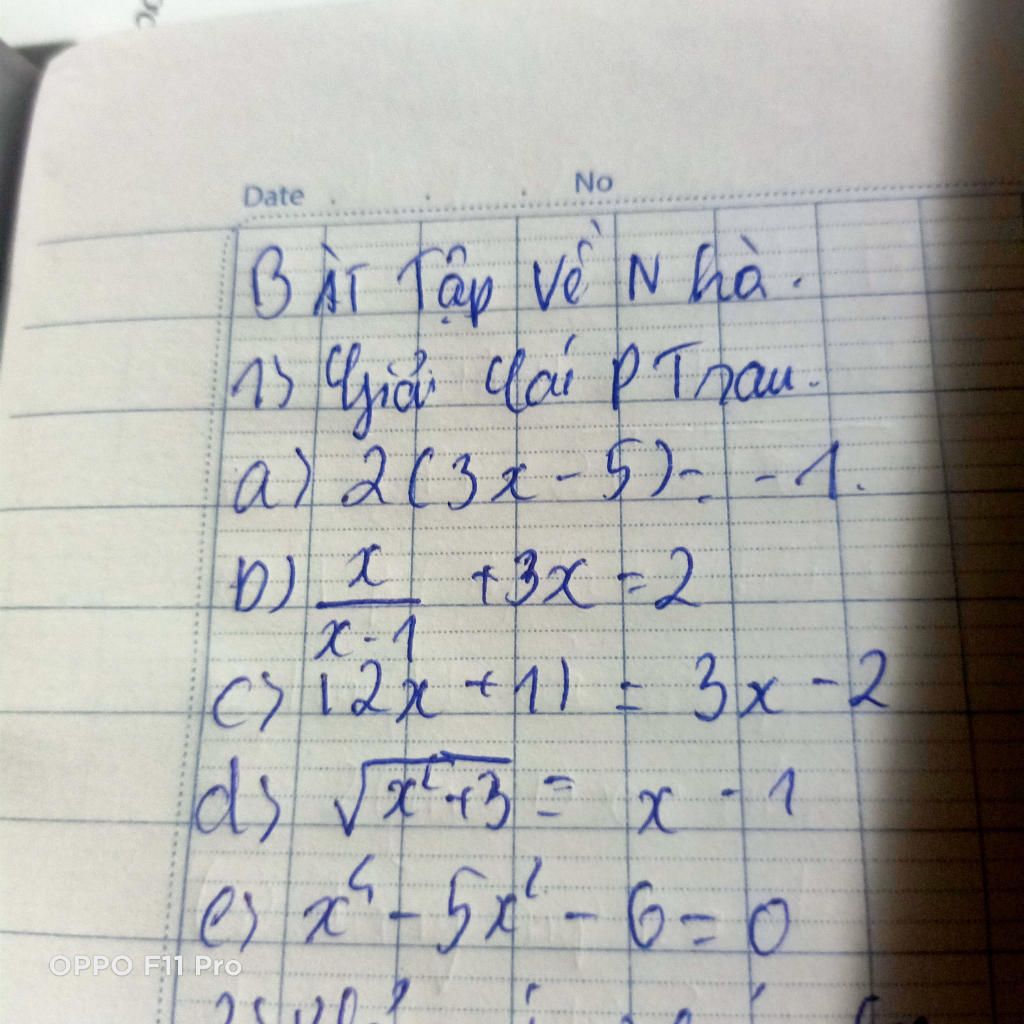 Date No
BÀI Tập Về Nhà.
1) Giải Cái PT sau.
a) 2(3x - 5) = -1.
b) x/(x-1) + 3x = 2
c) |2x + 1| = 3x - 2
d) √(x²+3) = x - 1
e) x⁴ - 5x² - 6 = 0
OPPO F11 Pro